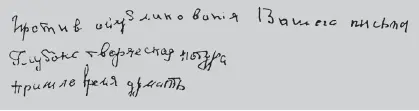 против опубликования Вашего письма
Глубоко творческая натура
пришло время думать